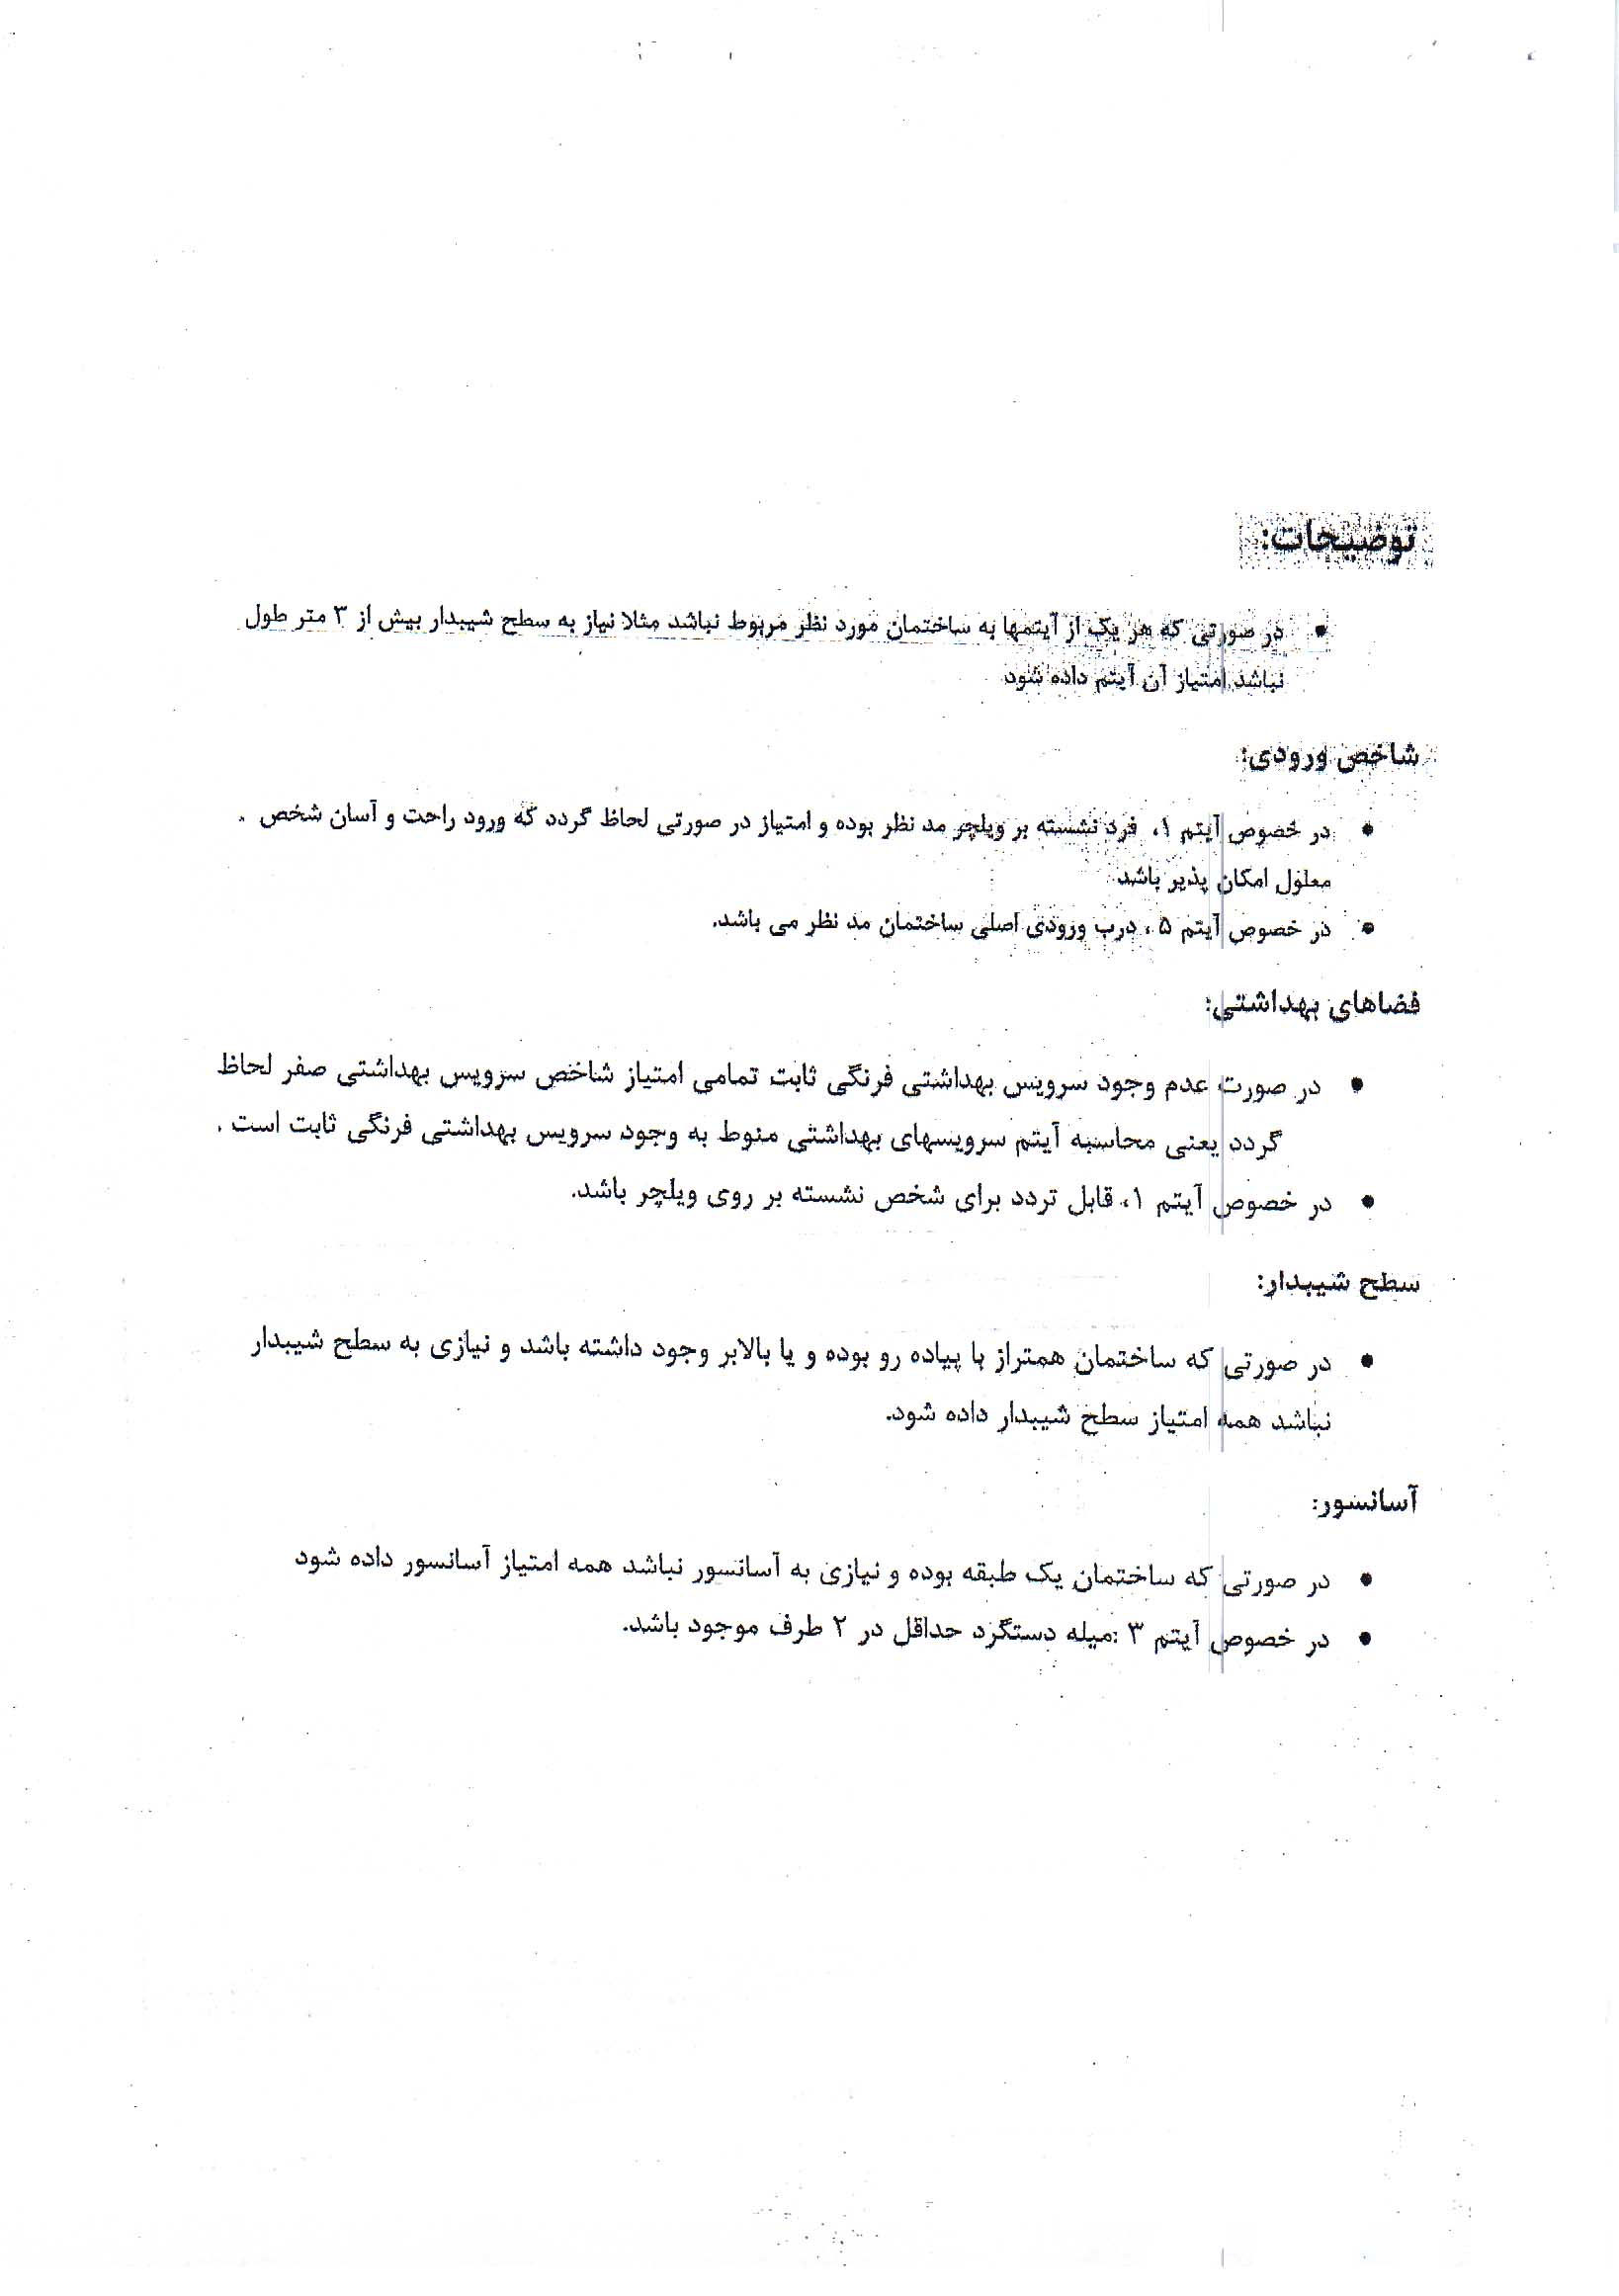 توضیحات:
• در صورتی که هر یک از آیتمها به ساختمان مورد نظر مربوط نباشد مثلا نیاز به سطح شیبدار بیش از ۳ متر طول
نباشد امتیاز آن آیتم داده شود
شاخص ورودی:
• در خصوص آیتم ۱، فرد نشسته بر ویلچر مد نظر بوده و امتیاز در صورتی لحاظ گردد که ورود راحت و آسان شخص
معلول امکان پذیر باشد
• در خصوص آیتم ۵ ، درب ورودی اصلی ساختمان مد نظر می باشد.
فضاهای بهداشتی:
• در صورت عدم وجود سرویس بهداشتی فرنگی ثابت تمامی امتیاز شاخص سرویس بهداشتی صفر لحاظ
گردد یعنی محاسبه آیتم سرویسهای بهداشتی منوط به وجود سرویس بهداشتی فرنگی ثابت است .
• در خصوص آیتم ۱، قابل تردد برای شخص نشسته بر روی ویلچر باشد.
سطح شیبدار:
• در صورتی که ساختمان همتراز با پیاده رو بوده و یا بالابر وجود داشته باشد و نیازی به سطح شیبدار
نباشد همه امتیاز سطح شیبدار داده شود.
آسانسور:
• در صورتی که ساختمان یک طبقه بوده و نیازی به آسانسور نباشد همه امتیاز آسانسور داده شود
• در خصوص آیتم ۳ :میله دستگرد حداقل در ۲ طرف موجود باشد.